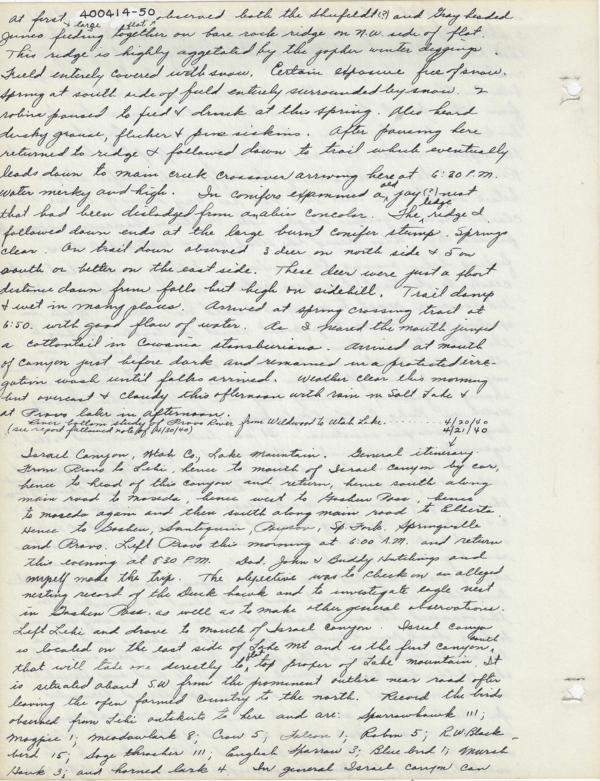 400414-50
At first, observed both the Shufeldt (?) and Gray headed
large flat
Juncos feeding together on bare rock ridge on N.W. side of flat.
This ridge is highly aggetated by the gopher winter diggings.
Field entirely covered with snow. Certain exposure free of snow.
Spring at south side of field entirely surrounded by snow. 2
robins paused to feed & drink at this spring. Also heard
dusky grouse, flicker & pine siskins. After pausing here
returned to ridge & followed down to trail which eventually
leads down to main creek crossover arriving here at 6:30 P.M.
Water merky and high. In conifers expammed a old jay (?) nest
that had been dislodged from a abies concolor. The ledge ridge I
followed down ends at the large burnt conifer stump. Springs
clear. On trail down observed 3 deer on north side & 5 on
south or better on the east side. These deer were just a short
distance down from falls but high on sidehill. Trail damp
& wet in many places. Arrived at spring crossing trail at
6:50. with good flow of water. As I neared the mouth jumped
a cottontail in Cowania stansburiana. Arrived at mouth
of canyon just before dark and remained in a protected irre-
gation wash until folks arrived. Weather clear this morning
but overcast & cloudy this afternoon with rain in Salt Lake &
at Provo later in afternoon.
River bottom study of Provo River from Wildwood to Utah Lake. 4/20/40
(see report followed note of 4/20/40) 4/21/40
Israel Canyon, Utah Co, Lake Mountain. General itinerary
From Provo to Lehi, hence to mouth of Israel canyon by car,
hence to head of this canyon and return, hence south along
main road to Mosida, hence west to Goshen Pass, hence
to mosida again and then south along main road to Elberta.
Hence to Goshen, Santiquin, Payson, Sp. Fork, Springville
and Provo. Left Provo this morning at 6:00 A.M. and return
this evening at 8:30 P.M. Dad, John & Buddy Hutchings and
myself made the trip. The objective was to check on an alleged
nesting record of the Duck hawk and to investigate eagle nest
in Goshen Pass. as well as to make other general observations.
Left Lehi and drove to mouth of Israel canyon. Isreal canyon
is located on the east side of Lake Mt and is the first canyon south
that will take one directly to flat top proper of Lake mountain. It
is situated about SW from the prominent outlire near road after
leaving the open farmed country to the north. Record the birds
observed from Lehi outskirts to here and are: Sparrowhawk 111;
Magpie 1; meadowlark 8; Crow 5; Falcon 1; Robin 5; R.W. Black-
bird 15; Sage thrasher 111; English Sparrow 3; Blue bird 1; Marsh
Hawk 3; and horned lark 4. In general Israel canyon can